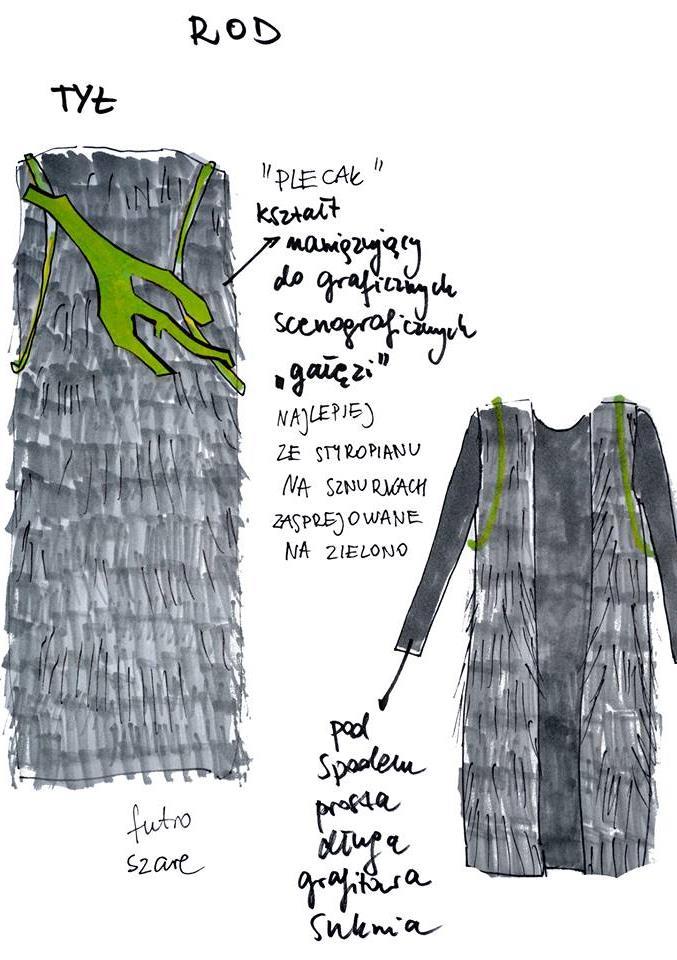 ROD
TYŁ
"PLECAK"
kształt
nawiązujący
do graficznych
scenograficznych
„gałęzi"
NAJLEPIEJ
ZE STYROPIANU
NA SZNURKACH
ZASPREJOWANE
NA ZIELONO
futro
szare
pod
spodem
prosta
długa
grafitowa
suknia